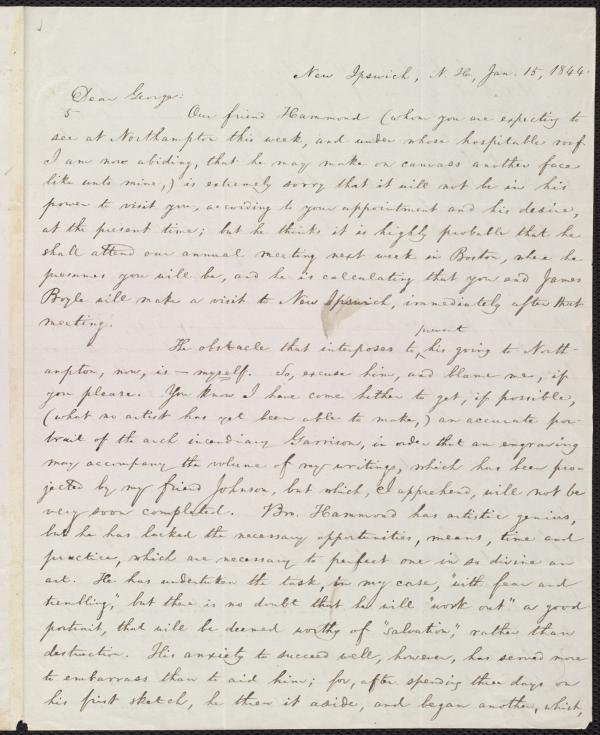 New Ipswich, N. H., Jan. 15, 1844.
Dear George:
5 Our friend Hammond (whom you are expecting to
see at Northampton this week, and under whose hospitable roof
I am now abiding, that he may make on canvass another face
like unto mine,) is extremely sorry that it will not be in his
power to visit you, according to your appointment and his desire,
at the present time; but he thinks it is highly probable that he
shall attend our annual meeting next week in Boston, where he
presumes you will be, and he is calculating that you and James
Boyle will make a visit to New Ipswich, immediately after that
meeting.
prevent
The obstacle that interposes to ‸ his going to North-
ampton, now, is — myself. So, excuse him, and blame me, if
you please. You know I have come hither to get, if possible,
(what no artist has yet been able to make,) an accurate por-
trait of the arch incendiary Garrison, in order that an engraving
may accompany the volume of my writings, which has been pro-
jected by my friend Johnson, but which, I apprehend, will not be
very soon completed. Bro. Hammond has artistic genius,
but he has lacked the necessary opportunities, means, time and
practice, which are necessary to perfect one in so divine an
art. He has undertaken the task, in my case, "with fear and
trembling," but there is no doubt that he will "work out" a good
portrait, that will be deemed worthy of "salvation," rather than
destruction. His anxiety to succeed well, however, has served more
to embarrass than to aid him; for, after spending three days on
his first sketch, he threw it aside, and began another, which,